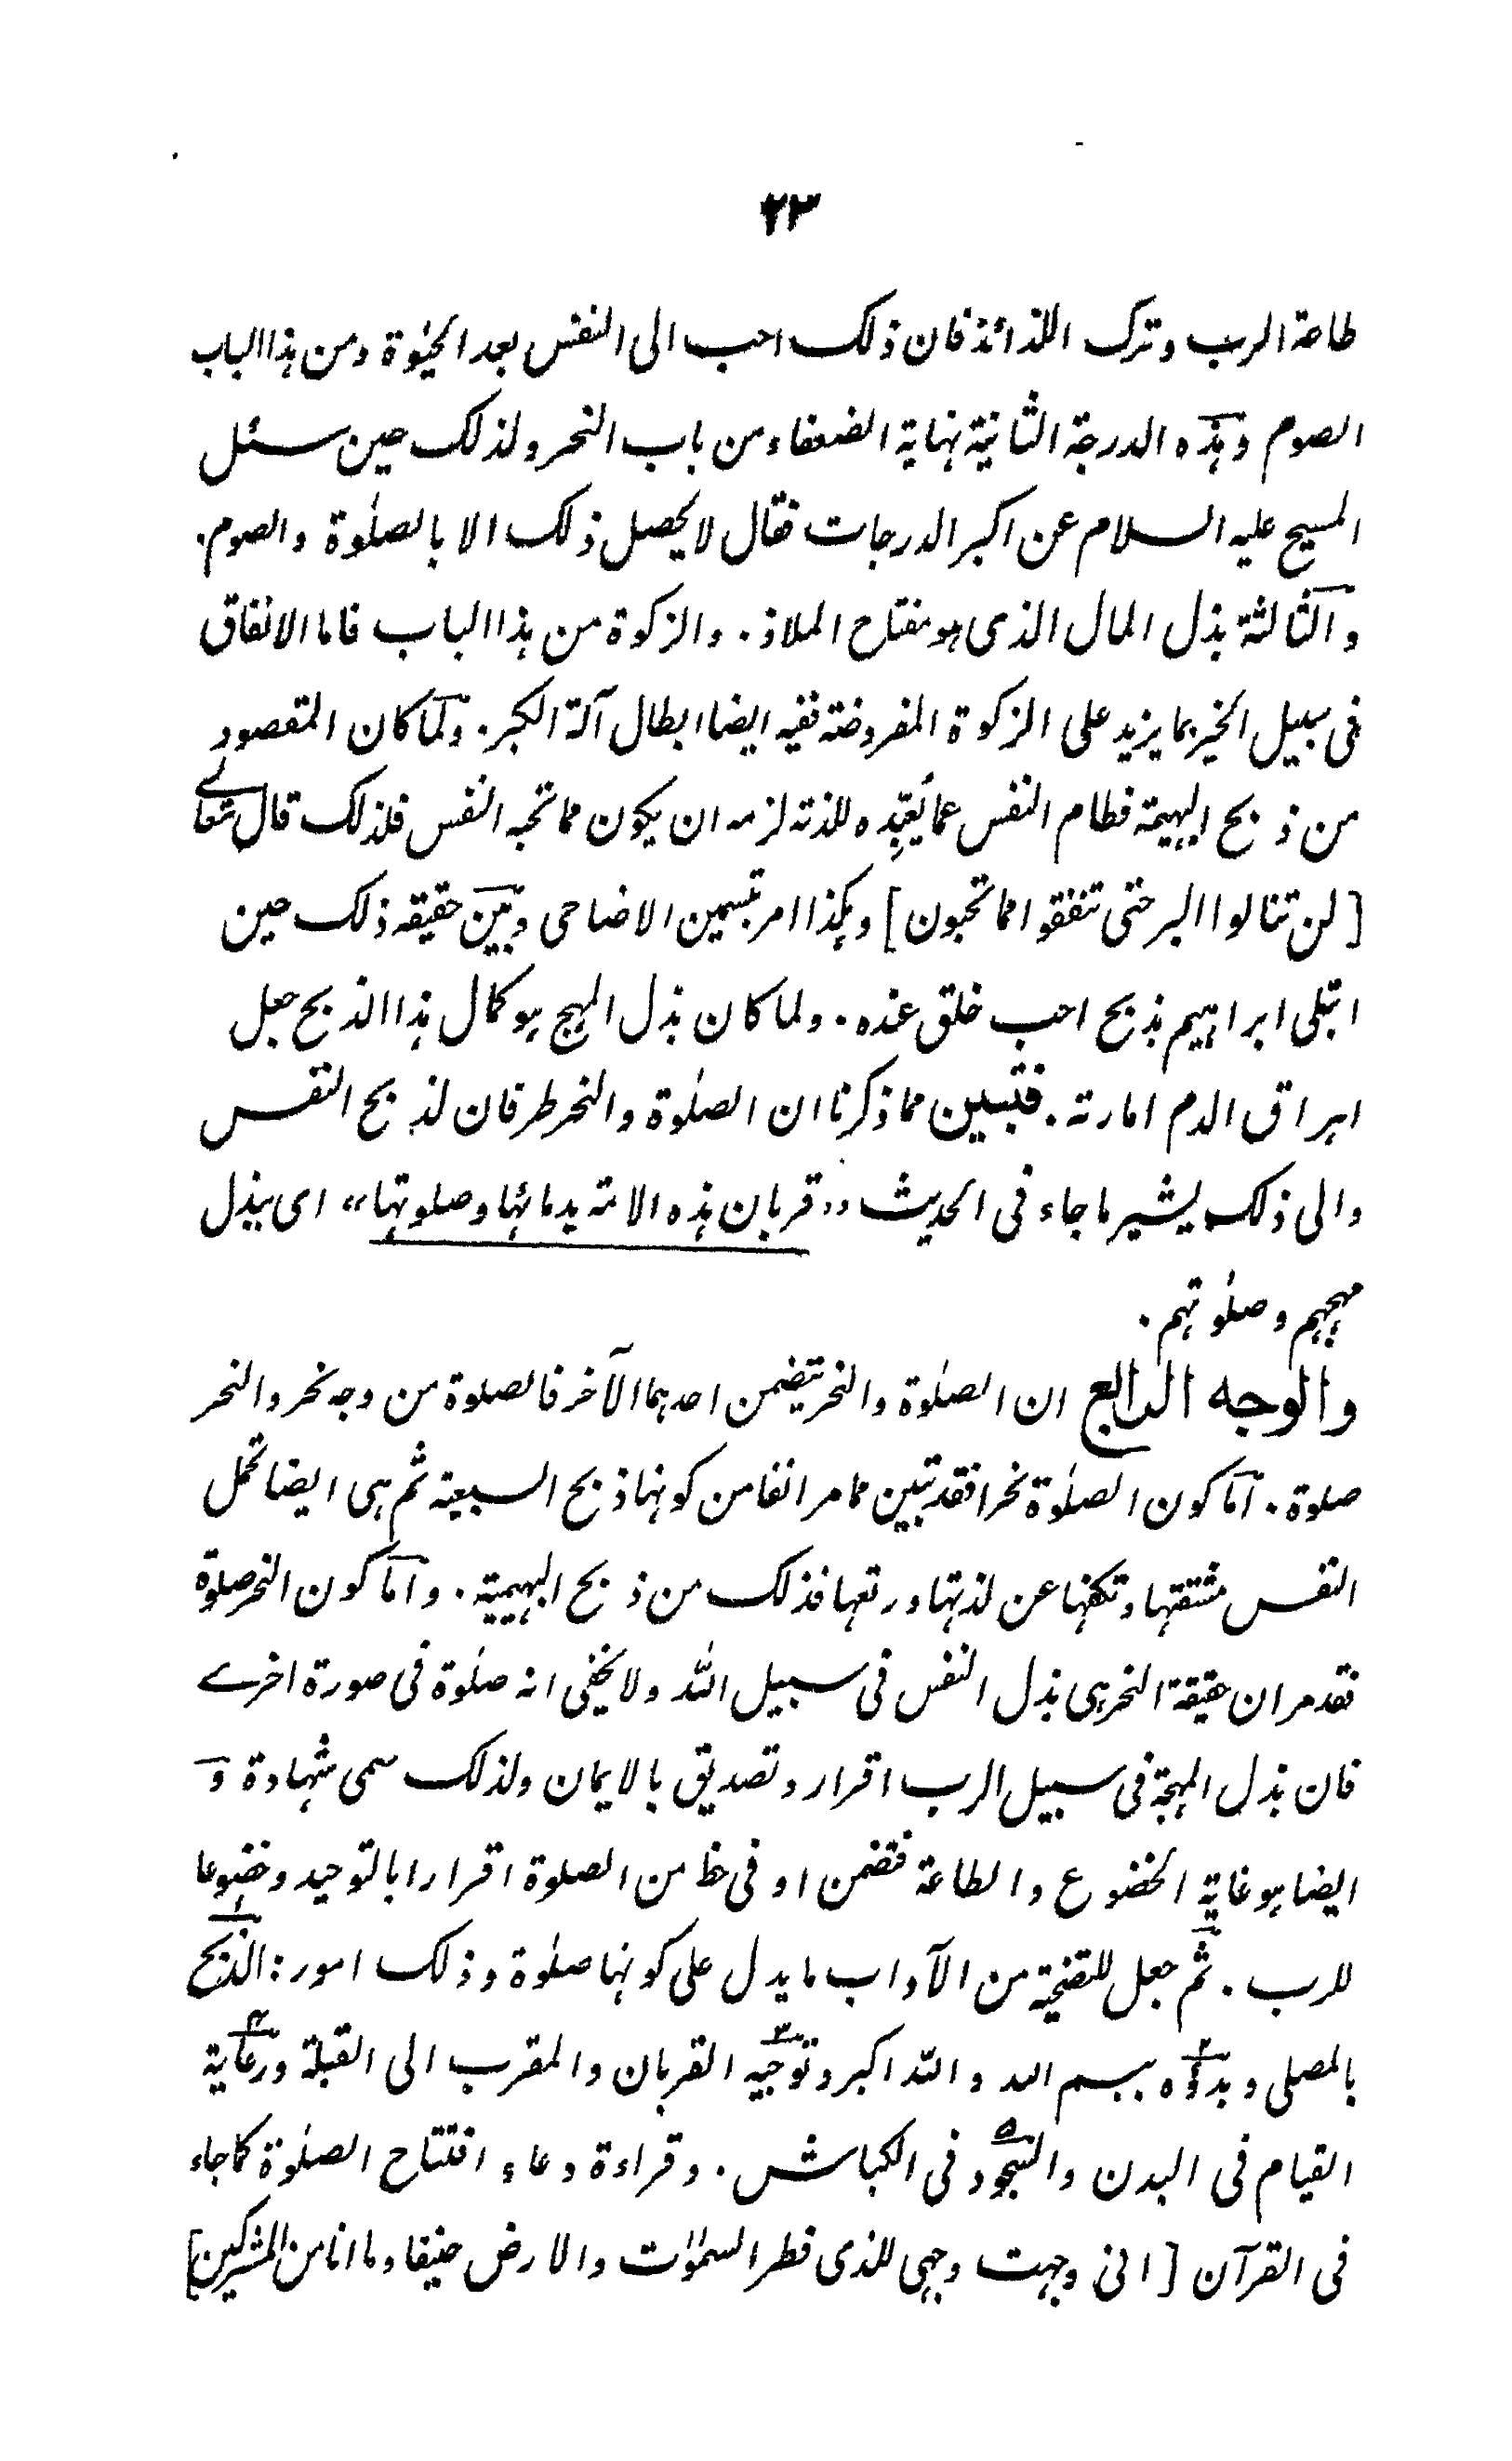 ٢٣
طاعة الرب وترك اللذائذ فان ذلك احب الى النفس بعد الحيٰوة ومن هذا الباب
الصوم وهذه الدرجة الثانية نهاية الضعفاء من باب النحر ولذلك حين سئل
المسيح عليه السلام عن اكبر الدرجات فقال لا يحصل ذلك الا بالصلٰوة والصوم.
والثالثة بذل المال الذى هو مفتاح الملاذ. والزكوة من هذا الباب فاما الانفاق
فى سبيل الخير بما يزيد على الزكوة المفروضته ففيه ايضا ابطال آلة الكبر. ولما كان المقصود
من ذبح البهيمة فطام النفس عما تُعبِّده للذته لزمه ان يكون مما تحبه النفس فلذلك قال تعالى
[لن تنالوا البر حتى تنفقوا مما تحبون] وهكذا امر بتسمين الاضاحى وبَيَّن حقيقه ذلك حين
ابتلى ابراهيم بذبح احب خلق عنده. ولما كان بذل المهج هو كمال هذا الذبح جعل
اهراق الدم امارته. فتبين مما ذكرنا ان الصلٰوة والنحر طرفان لذبح النفس
والى ذلك يشير ما جاء فى الحديث "قربان هذه الامته بدمائها وصلوتها" اى ببذل
مهجهم وصلٰوتهم.
والوجه الرابع ان الصلٰوة والنحر يتضمن احدهما الآخر فالصلوة من وجه نحر والنحر
صلوة. اما كون الصلٰوة نحرا فقد تبين مما مر انفا من كونها ذبح السبعية ثم هى ايضا تحمل
النفس مشتقتها وتكفها عن لذتها ورتعها فذلك من ذبح البهيمية. واما كون النحر صلٰوة
فقد مر ان حقيقة النحر هى بذل النفس فى سبيل الله ولا يخفى انه صلٰوة فى صورة اخرے
فان بذل المهجة فى سبيل الرب اقرار وتصديق بالايمان ولذلك سمى شهادة و
ايضا هو غاية الخضوع والطاعة فتضمن اوفى حظ من الصلوة اقرارا بالتوحيد وخضوعا
للرب. ثم جعل للتضحية من الآداب ما يدل على كونها صلٰوة وذلك امور: الذبح
بالمصلى وبدؤه ببسم الله والله اكبر وتوجيه القربان والمقرب الى القبلة ورعاية
القيام فى البدن والسجود فى الكباش. وقراءة دعاء افتتاح الصلٰوة كما جاء
فى القرآن [انى وجهت وجهى للذى فطر السمٰوٰت والارض حنيفا وما انا من المشركين]